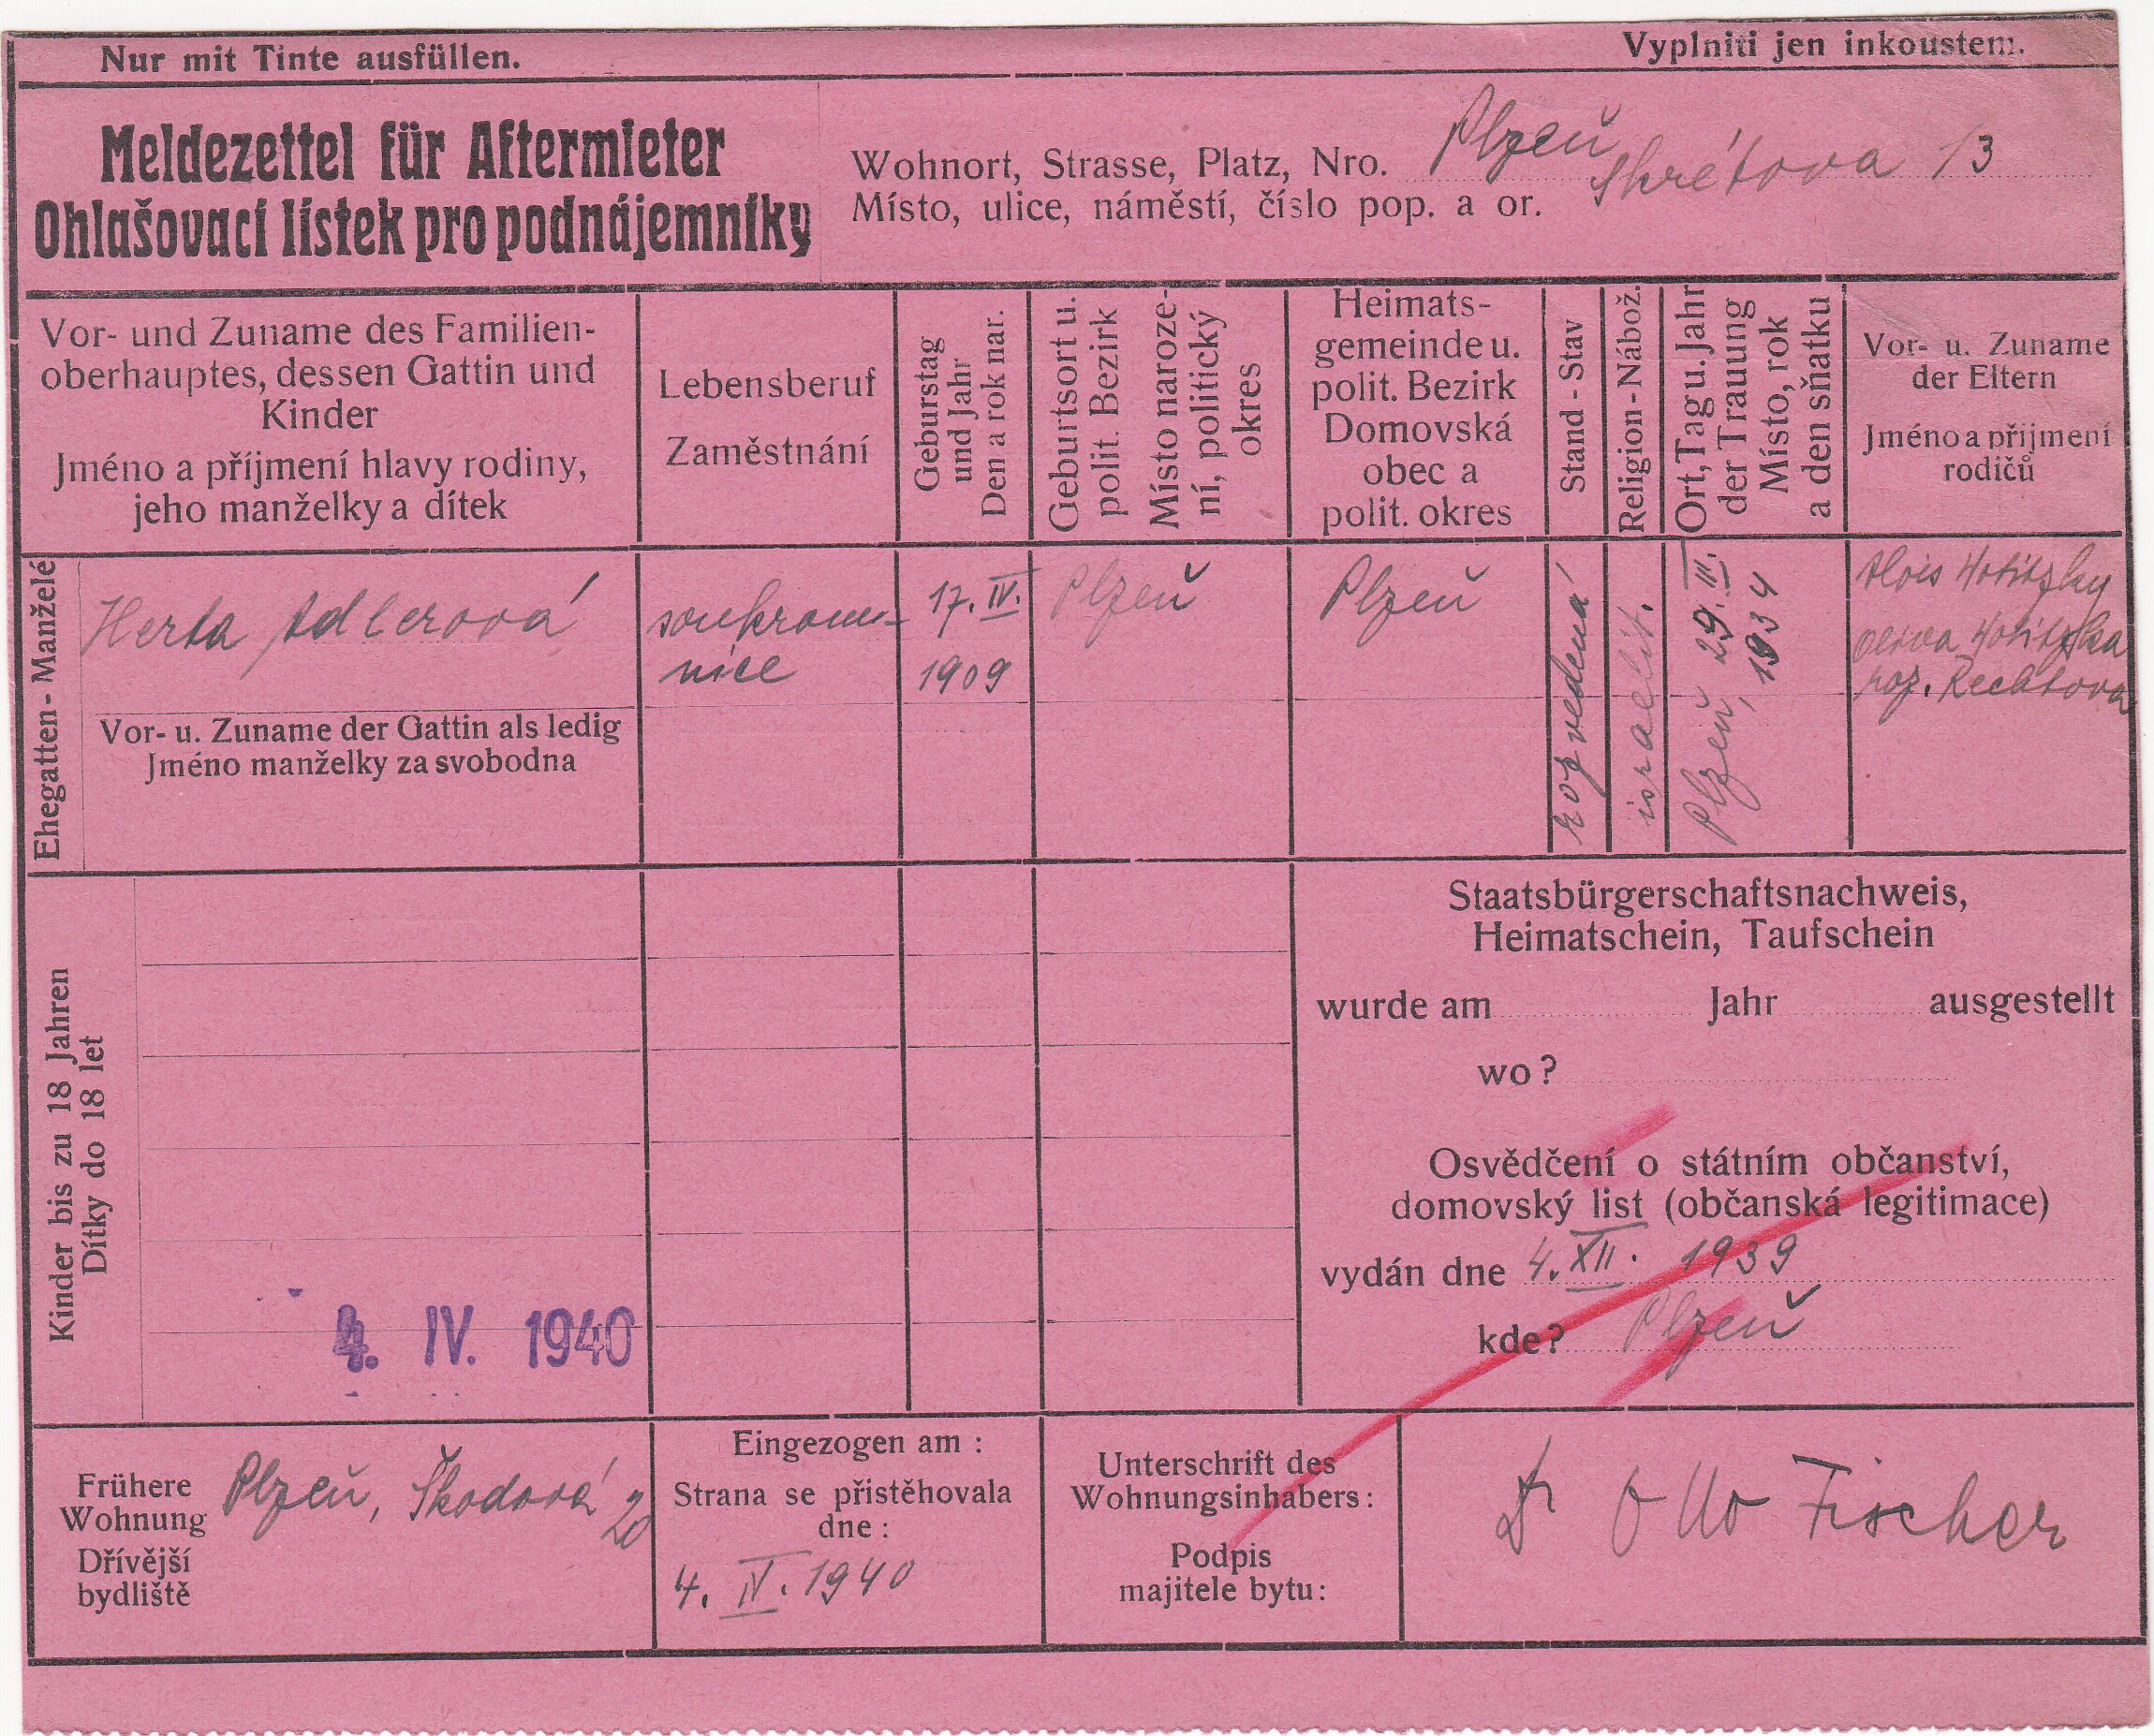 Nur mit Tinte ausfüllen.
Vyplniti jen inkoustem.
Meldezettel für Aftermieter
Ohlašovací lístek pro podnájemníky
Wohnort, Strasse, Platz, Nro.
Místo, ulice, náměstí, číslo pop. a or.
Plzeň
Skrétova 13
Vor- und Zuname des Familien-
oberhauptes, dessen Gattin und
Kinder
Jméno a příjmení hlavy rodiny,
jeho manželky a dítek
Lebensberuf
Zaměstnání
Geburstag
und Jahr
Den a rok nar.
Geburtsort u.
polit. Bezirk
Místo naroze-
ní, politický
okres
Heimats-
gemeinde u.
polit. Bezirk
Domovská
obec a
polit. okres
Stand - Stav
Religion - Nábož.
Ort, Tag u. Jahr
der Trauung
Místo, rok
a den sňatku
Vor- u. Zuname
der Eltern
Jméno a přijmení
rodičů
Ehegatten - Manželé
Herta Adlerová
soukrom-
nice
17. IV.
1909
Plzeň
Plzeň
rozvedená
israelit.
Plzeň, 29. III.
1934
Alois
roz.
Vor- u. Zuname der Gattin als ledig
Jméno manželky za svobodna
Kinder bis zu 18 Jahren
Dítky do 18 let
4. IV. 1940
Staatsbürgerschaftsnachweis,
Heimatschein, Taufschein
wurde am Jahr ausgestellt
wo?
Osvědčení o státním občanství,
domovský list (občanská legitimace)
vydán dne 4. XII. 1939
kde? Plzeň
Frühere
Wohnung
Dřívější
bydliště
Plzeň, Škodová 20
Eingezogen am :
Strana se přistěhovala
dne :
4. IV. 1940
Unterschrift des
Wohnungsinhabers :
Podpis
majitele bytu :
Dr Otto Fischer